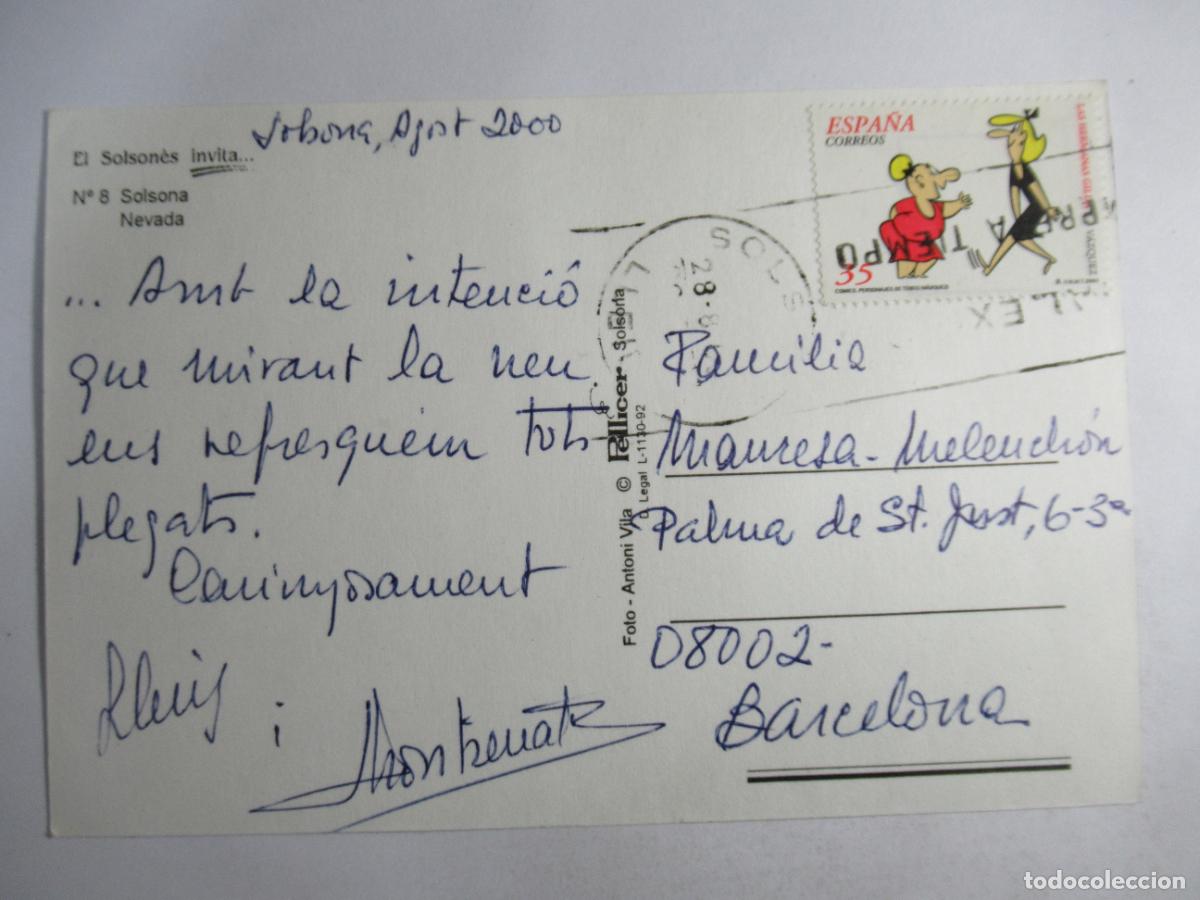 Solsona, Agost 2000
El Solsonès invita...
Nº 8 Solsona
Nevada
... Amb la intenció
que mirant la neu
ens refresquem tots
plegats.
Carinyosament
Lluis
i
Montserrat
Foto - Antoni Vila © Pellicer - Solsona
D. Legal L-1130-92
ESPAÑA
CORREOS
35
LAS HERMANAS GILDA
VAZQUEZ
COMICS. PERSONAJES DE TEBEO
SOLS
28-8
A TIEMPO
Familia
Manresa-Melenchón
Palma de St. Just, 6-3ª
08002-
Barcelona
todocoleccion